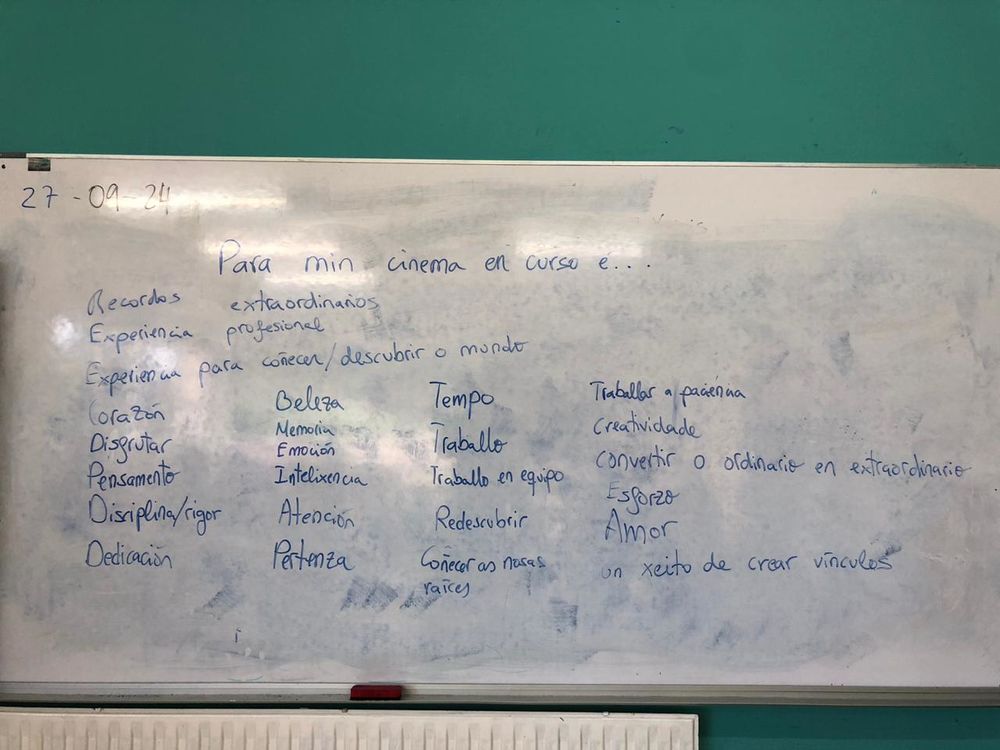 27-09-24
Para min cinema en curso é...
Recordos extraordinarios
Experiencia profesional
Experiencia para coñecer/descubrir o mundo
Corazón
Disfrutar
Pensamento
Disciplina/rigor
Dedicación
Beleza
Memoria
Emoción
Intelixencia
Atención
Pertenza
Tempo
Traballo
Traballo en equipo
Redescubrir
Coñecer as nosas
raíces
Traballar a paciencia
Creatividade
Convertir o ordinario en extraordinario
Esforzo
Amor
un xeito de crear vínculos